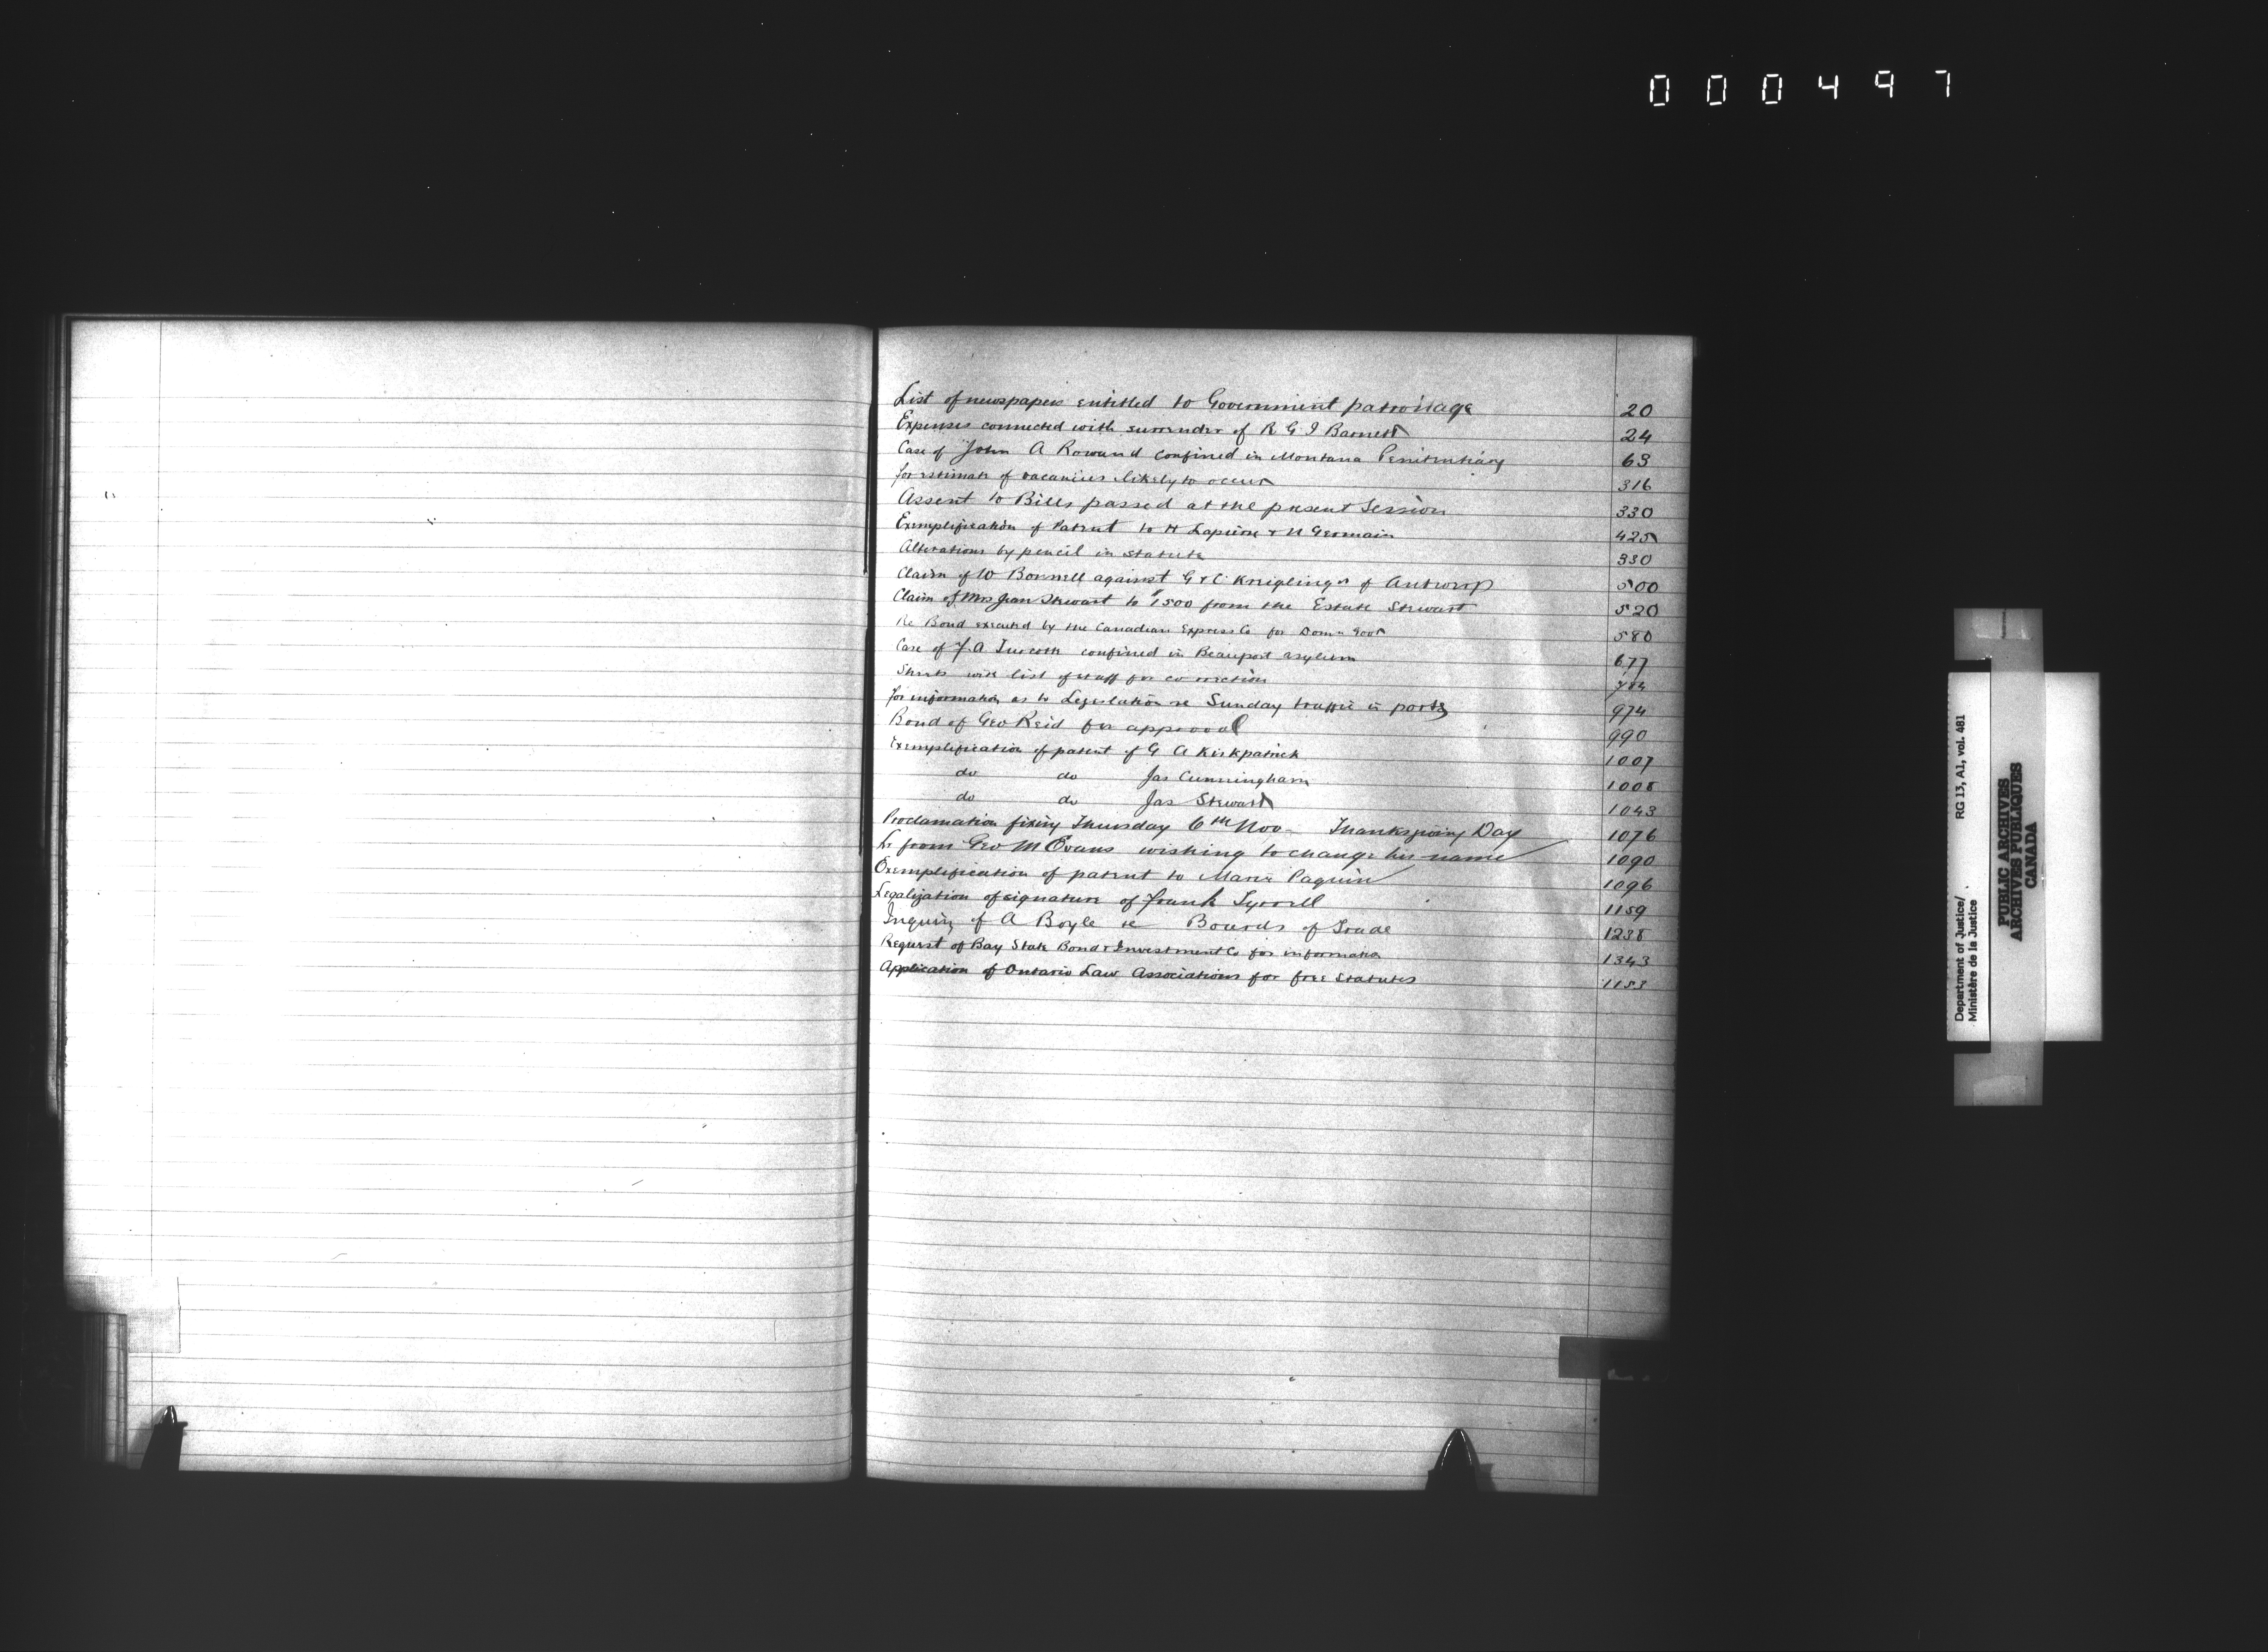 000497
List of newspapers entitled to Government patronage 20
Expenses connected with surrender of R G I Barnett 24
Case of John A Rowand confined in Montana Penitentiary 63
for estimate of vacancies likely to occur 316
Assent to Bills passed at the present Session 330
Exemplification of Patent to H Lapierre & N Germain 425
Alterations by pencil in statute 330
Claim of W Bonnell against G & C Kreiglinger of Antwerp 500
Claim of Mrs Jean Stewart to $1500 from the Estate Stewart 520
Re Bond executed by the Canadian Express Co for Domn Govt 580
Case of F. A Turcotte confined in Beauport asylum 677
Sheets with list of staff for correction
for information as to Legislation re Sunday traffic in ports 974
Bond of Geo Reid for approval 990
Exemplification of patent of G A Kirkpatrick 1007
do do Jas Cunningham 1008
do do Jas Stewart 1043
Proclamation fixing Thursday 6th Nov - Thanksgiving Day 1076
Lr from Geo M Evans wishing to change his name 1090
Exemplification of patent to Marie Paquin 1096
Legalization of signature of Frank Tyrrell 1159
Inquiry of A Boyle re Boards of Trade 1238
Request of Bay State Bond & Investment Co for information 1343
Application of Ontario Law Associations for free Statutes 1153
Department of Justice/
Ministère de la Justice
RG 13, A1, vol. 481
PUBLIC ARCHIVES
ARCHIVES PUBLIQUES
CANADA